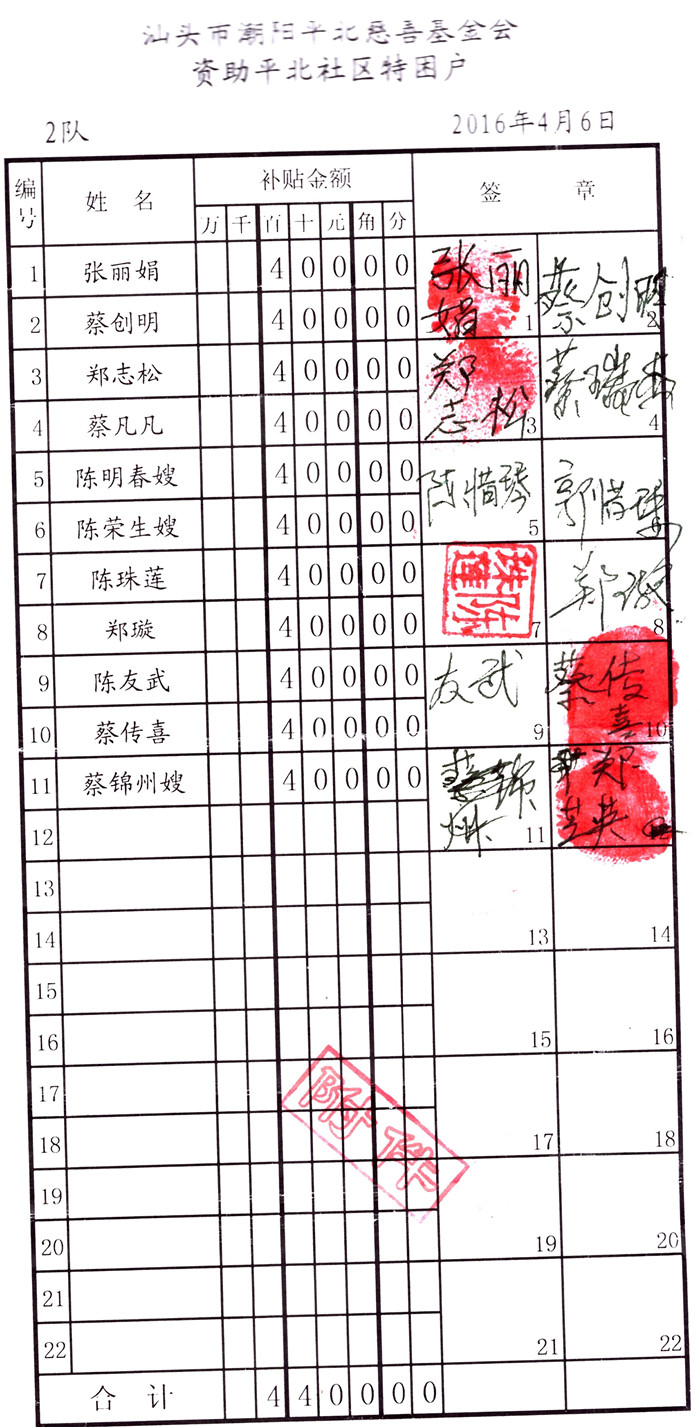 汕头市潮阳平北慈善基金会
资助平北社区特困户
2队 2016年4月6日
编号 姓名 补贴金额 签章
万 千 百 十 元 角 分
1 张丽娟 4 0 0 0 0 张丽娟 1 蔡创明 2
2 蔡创明 4 0 0 0 0
3 郑志松 4 0 0 0 0 郑志松 3 蔡瑞 4
4 蔡凡凡 4 0 0 0 0
5 陈明春嫂 4 0 0 0 0 陈惜琴 5 郭惜 6
6 陈荣生嫂 4 0 0 0 0
7 陈珠莲 4 0 0 0 0 陈珠莲 7 郑璇 8
8 郑璇 4 0 0 0 0
9 陈友武 4 0 0 0 0 友武 9 蔡传喜 10
10 蔡传喜 4 0 0 0 0
11 蔡锦州嫂 4 0 0 0 0 11 郑
12
13
14 13 14
15
16 15 16
17
18 17 18
附件
19
20 19 20
21
22 21 22
合计 4 4 0 0 0 0